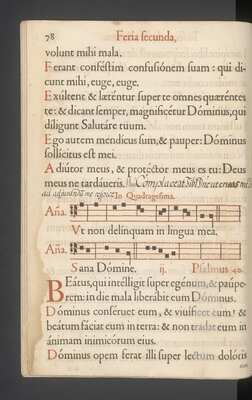 78 Feria secunda,
volunt mihi mala.
Ferant conféstim confusiónem suam : qui di-
cunt mihi, euge, euge.
Exúltent & læténtur super te omnes quæréntes
te: & dicant semper, magnificétur Dóminus, qui
diligunt Salutáre tuum.
Ego autem mendícus sum, & pauper: Dóminus
sollícitus est mei.
Adiútor meus, & protéctor meus es tu: Deus
meus ne tardáveris. Compláceat
In Quadragesima.
Aña.
Vt non delinquam in lingua mea.
Aña.
Sana Dómine. ij. Psalmus 40.
BEátus, qui intélligit super egénum, & páupe-
rem: in die mala liberábit eum Dóminus.
Dóminus consérvet eum, & vivíficet eum, &
beátum fáciat eum in terra: & non tradat eum in
ánimam inimicórum eius.
Dóminus opem ferat illi super lectum dolóris